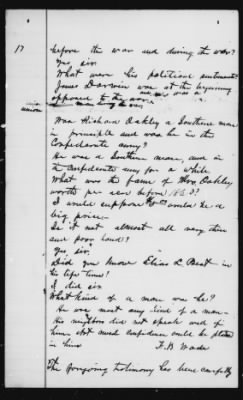 17
before the war and during the war?
Yes sir
What were his political sentiments?
James Darwin was at the beginning
opposed to the war
Was Richard Oakley a Southern man
in principle and was he in the
Confederate army?
He was a Southern man, and in
the Confederate army for a while
What was the farm of Mrs. Oakley
worth per acre before 1862?
I would suppose would be a
big price
Is it not almost all very thin
and poor land?
Yes sir
Did you know Elias L. Best in
his life time?
I did sir
What kind of a man was he?
He was most any kind of a man
His neighbors did not speak well of
him. Not much confidence could be placed
in him
F. B. Wade
The foregoing testimony has been carefully